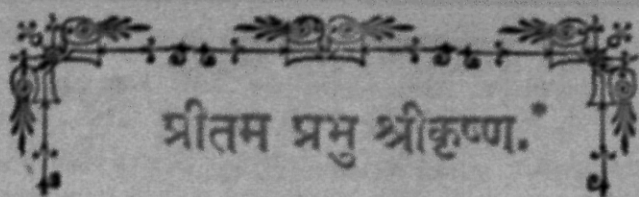 प्रीतम प्रभु श्रीकृष्ण.*